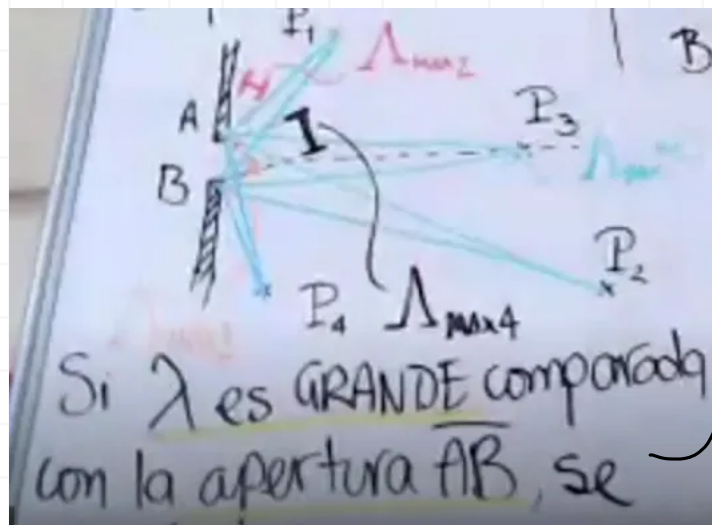 P₁
Λmax2
B
A
P₃
B
P₂
P₄ Λmax4
Si λ es GRANDE comparada
con la apertura AB, se